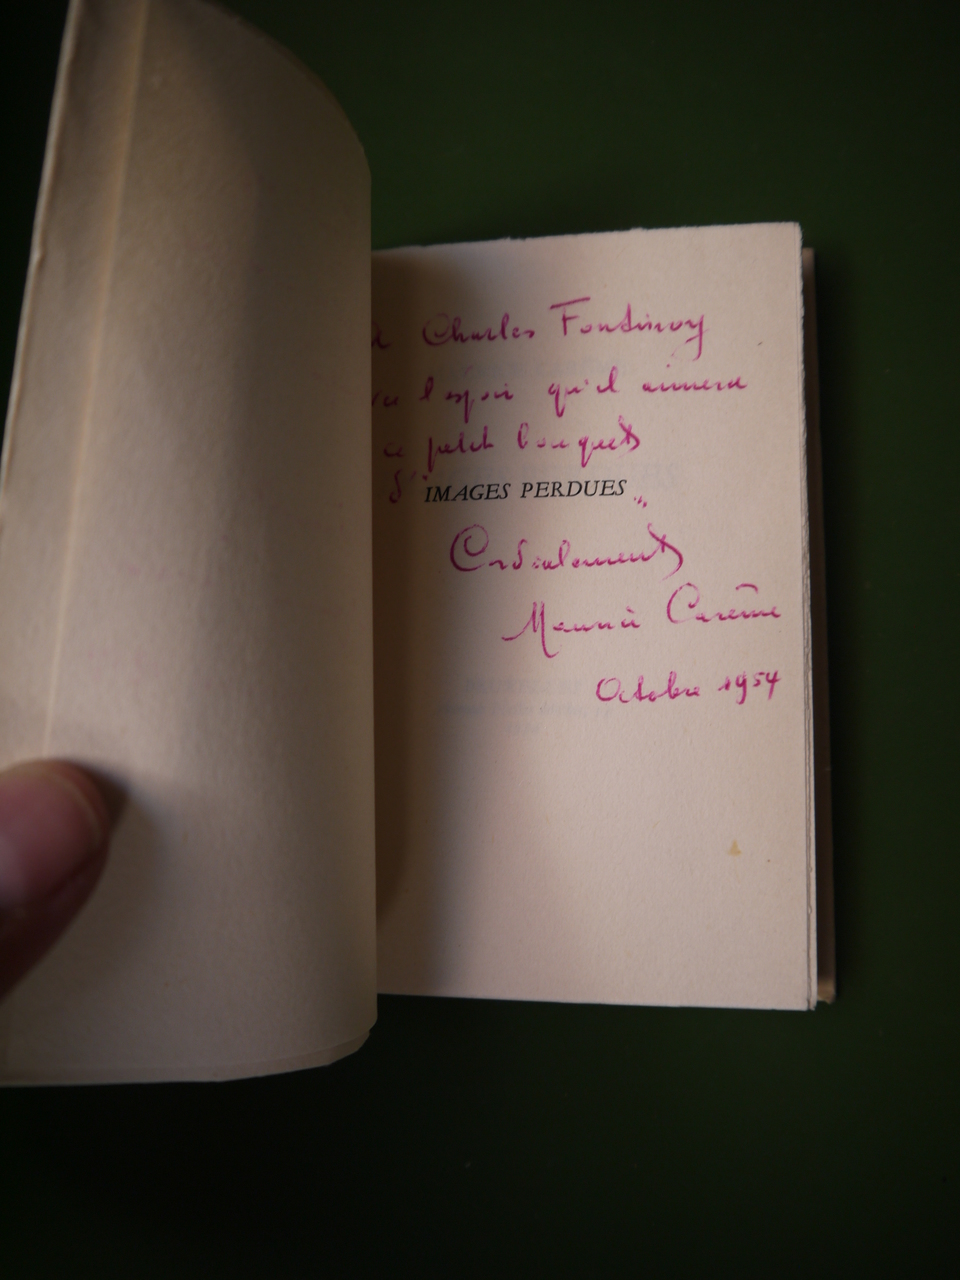 A Charles Fontinoy
avec l'espoir qu'il aimera
ce petit bouquet
d' IMAGES PERDUES "
Cordialement
Maurice Carême
Octobre 1954